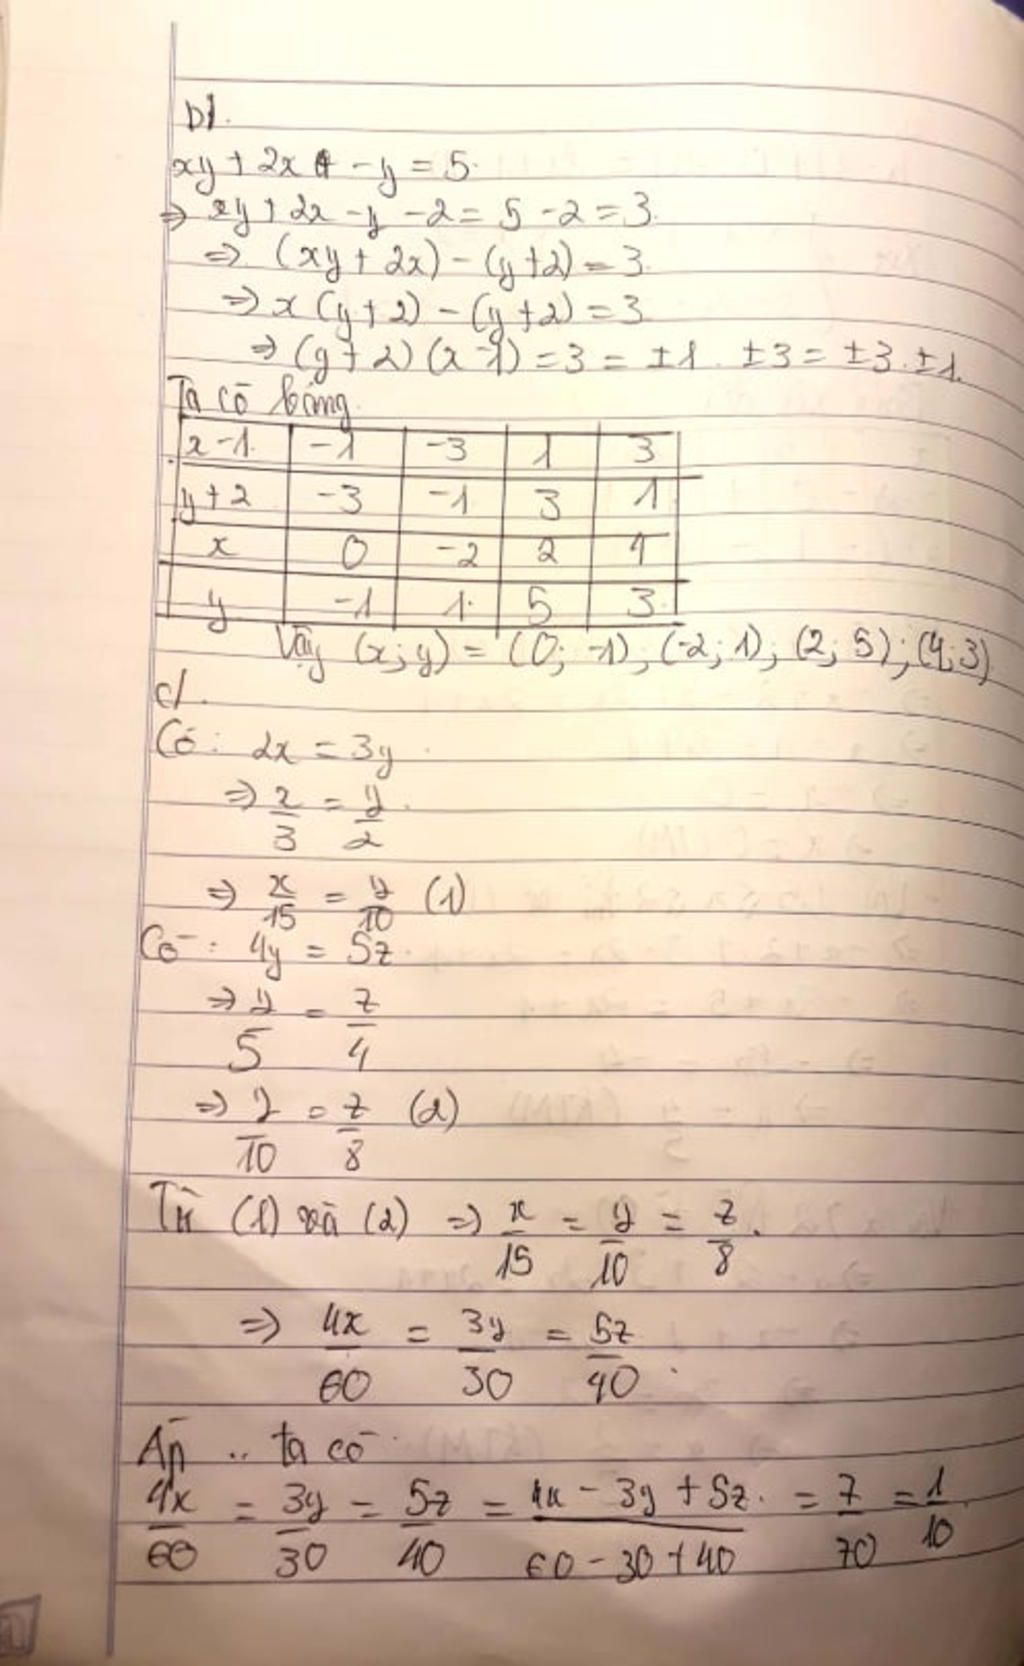 b/.
xy + 2x - y = 5.
=> xy + 2x - y - 2 = 5 - 2 = 3.
=> (xy + 2x) - (y + 2) = 3.
=> x (y + 2) - (y + 2) = 3
=> (y + 2) (x - 1) = 3 = ±1. ±3 = ±3. ±1.
Ta có bảng
x - 1. | -1 | -3 | 1 | 3
y + 2 | -3 | -1 | 3 | 1
x | 0 | -2 | 2 | 4
y | -1 | 1. | 5 | 3.
Vậy (x; y) = (0; -1), (-2; 1), (2; 5); (4; 3)
c/.
Có: 2x = 3y.
=> x/3 = y/2.
=> x/15 = y/10 (1)
Có: 4y = 5z.
=> y/5 = z/4
=> y/10 = z/8 (2)
Từ (1) và (2) => x/15 = y/10 = z/8.
=> 4x/60 = 3y/30 = 5z/40.
Áp .. ta có
4x/60 = 3y/30 = 5z/40 = 4x - 3y + 5z./60 - 30 + 40 = 7/70 = 1/10.